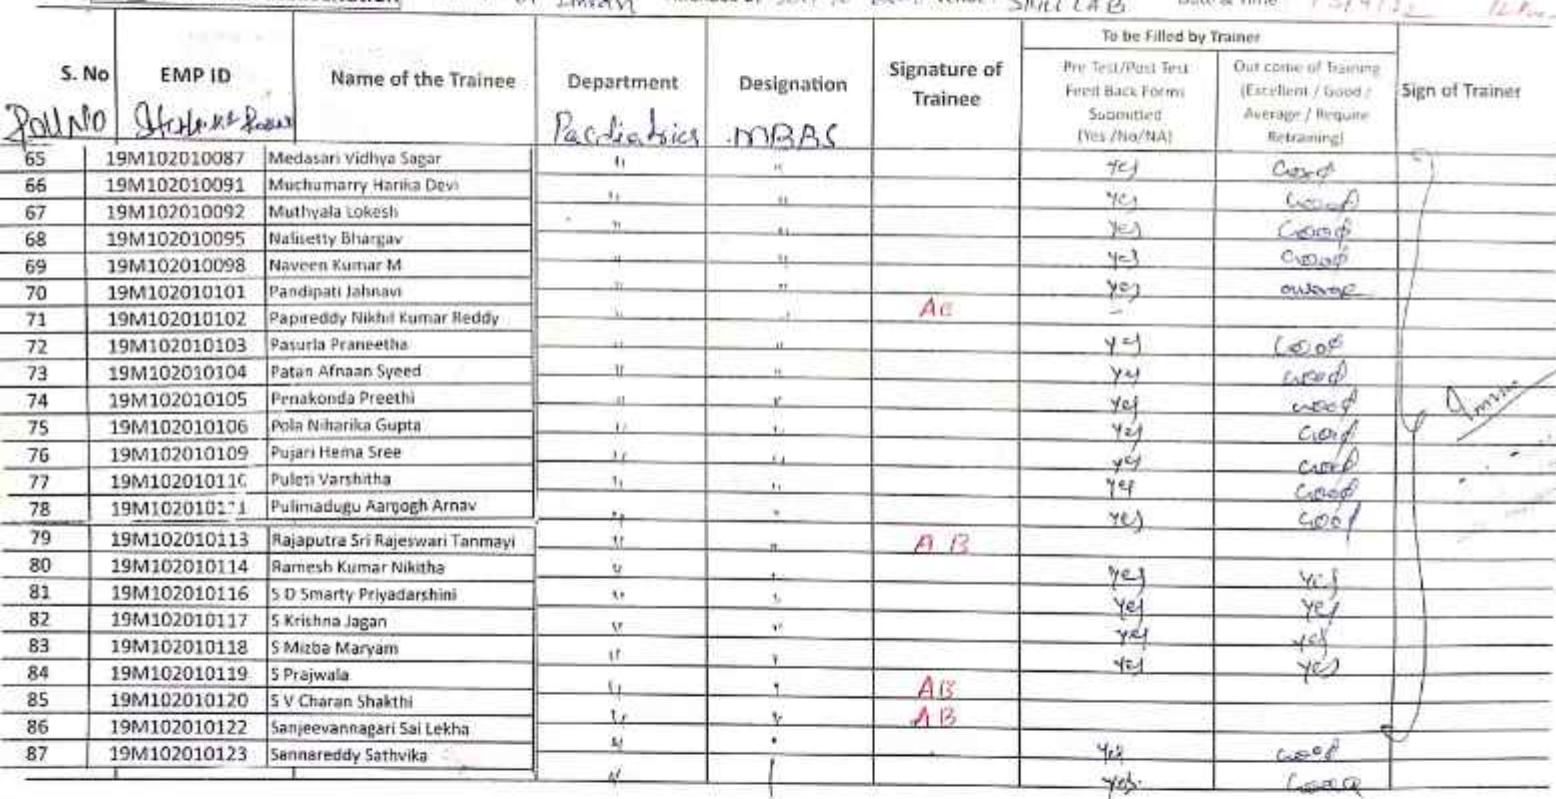 SKILL LAB
To be Filled by Trainer
S. No EMP ID Name of the Trainee Department Designation Signature of Trainee Pre Test/Post Test Feed Back Forms Submitted (Yes /No/NA) Out come of Training (Excellent / Good / Average / Require Retraining) Sign of Trainer
Roll No Paediatrics MBBS
65 19M102010087 Medasari Vidhya Sagar " " Yes Good
66 19M102010091 Muchumarry Harika Devi " " Yes Good
67 19M102010092 Muthyala Lokesh " " Yes Good
68 19M102010095 Nalisetty Bhargav " " Yes Good
69 19M102010098 Naveen Kumar M " " Yes average
70 19M102010101 Pandipati Jahnavi " " AB -
71 19M102010102 Papireddy Nikhil Kumar Reddy " " Yes Good
72 19M102010103 Pasurla Praneetha " " Yes Good
73 19M102010104 Patan Afnaan Syeed " " Yes Good
74 19M102010105 Penakonda Preethi " " Yes Good
75 19M102010106 Pola Niharika Gupta " " Yes Good
76 19M102010109 Pujari Hema Sree " " Yes Good
77 19M102010110 Puleti Varshitha " " Yes Good
78 19M102010111 Pulimadugu Aarogh Arnav " "
79 19M102010113 Rajaputra Sri Rajeswari Tanmayi " " A B
80 19M102010114 Ramesh Kumar Nikitha " " Yes Yes
81 19M102010116 S D Smarty Priyadarshini " " Yes Yes
82 19M102010117 S Krishna Jagan " " Yes Yes
83 19M102010118 S Mizba Maryam " " Yes Yes
84 19M102010119 S Prajwala " " AB
85 19M102010120 S V Charan Shakthi " " AB
86 19M102010122 Sanjeevannagari Sai Lekha " " Yes Good
87 19M102010123 Sannareddy Sathvika " Yes Good